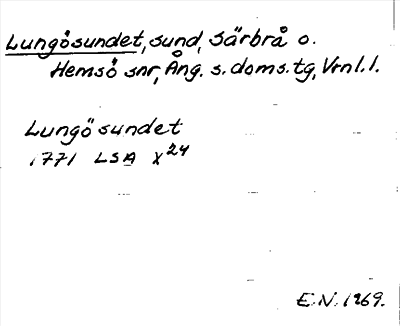 Lungösundet, sund, Särbrå o.
Hemsö snr, Ång. s. doms. tg, Vrnl. l.
Lungösundet
1771 LSA X24
E.N. 1969.